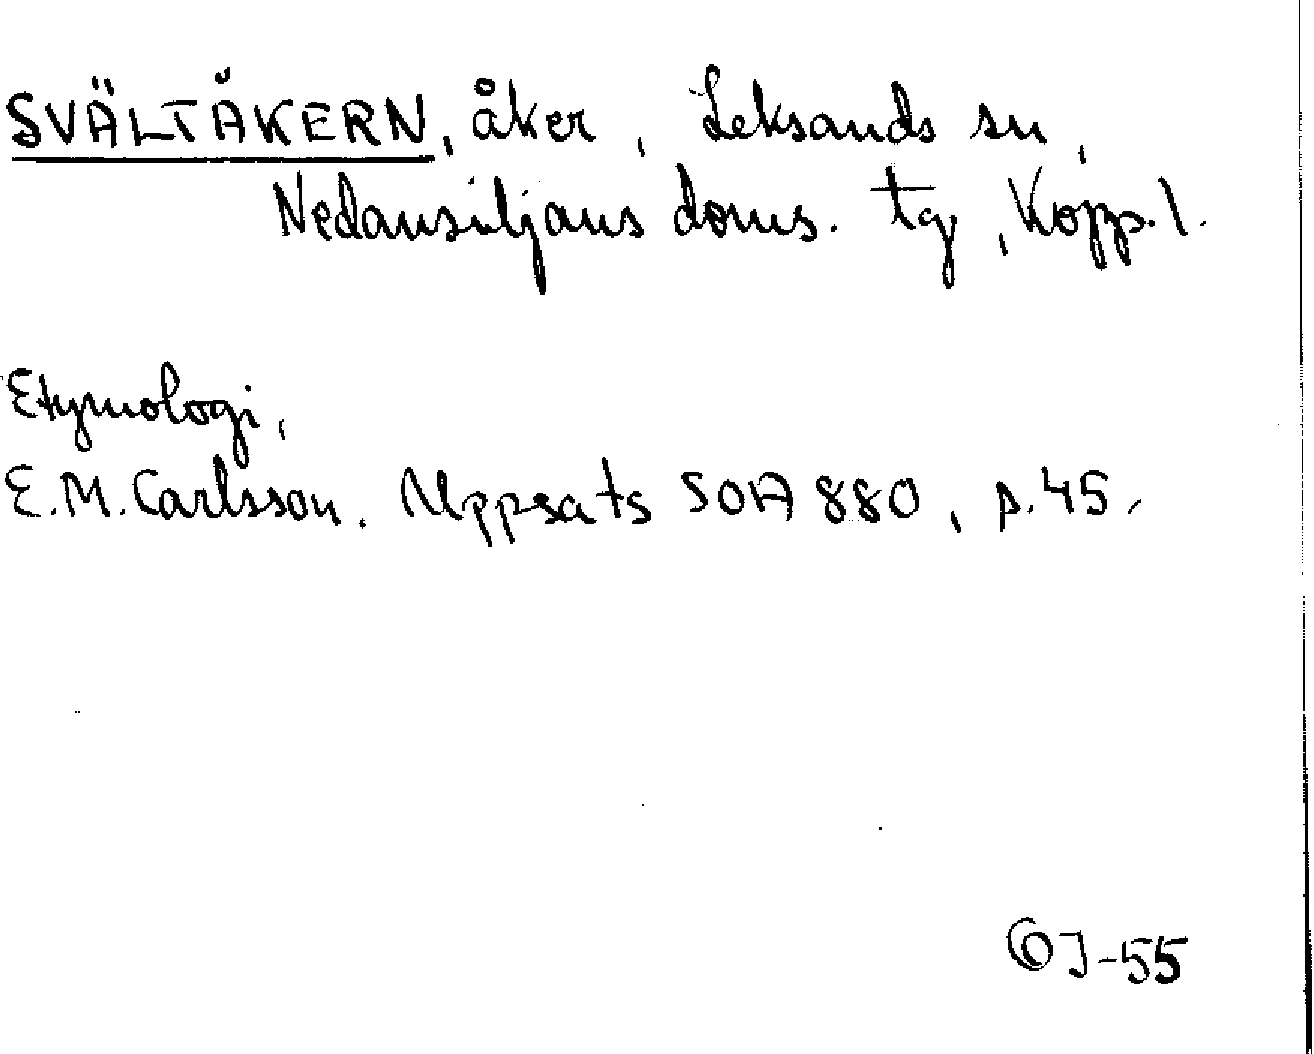 SVÄLTÅKERN, åker, Leksands sn,
Nedansiljans doms. tg, Kopp. l.
Etymologi,
E.M. Carlsson. Uppsats SOA 880, s. 45.
OJ-55